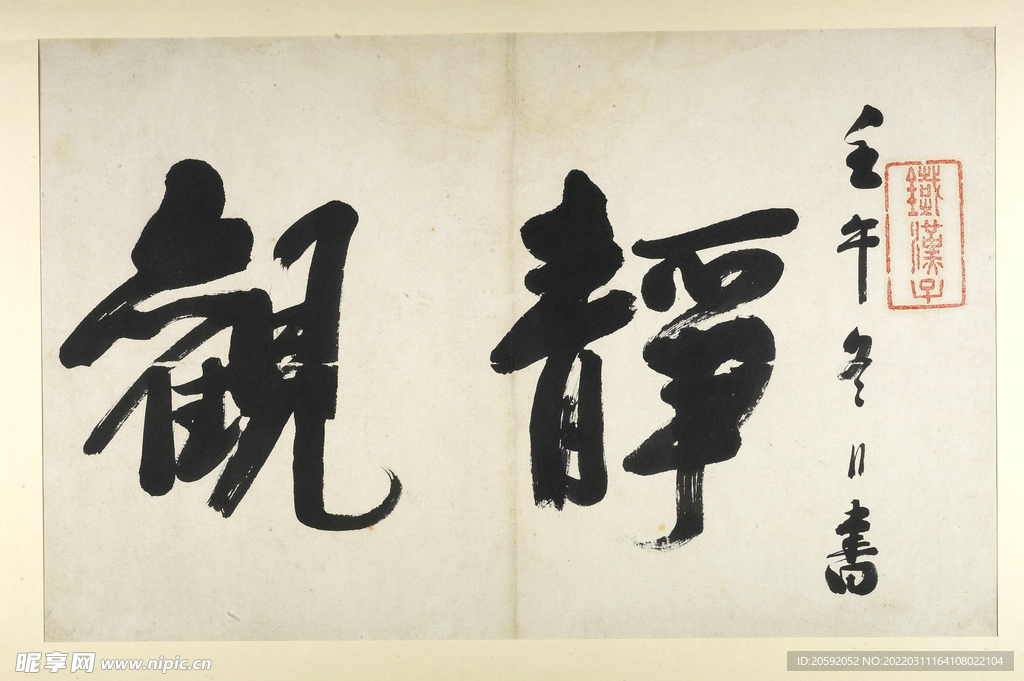 壬午冬日書
鐵漢子
靜觀
昵享网 www.nipic.cn
ID:20592052 NO:20220311164108022104